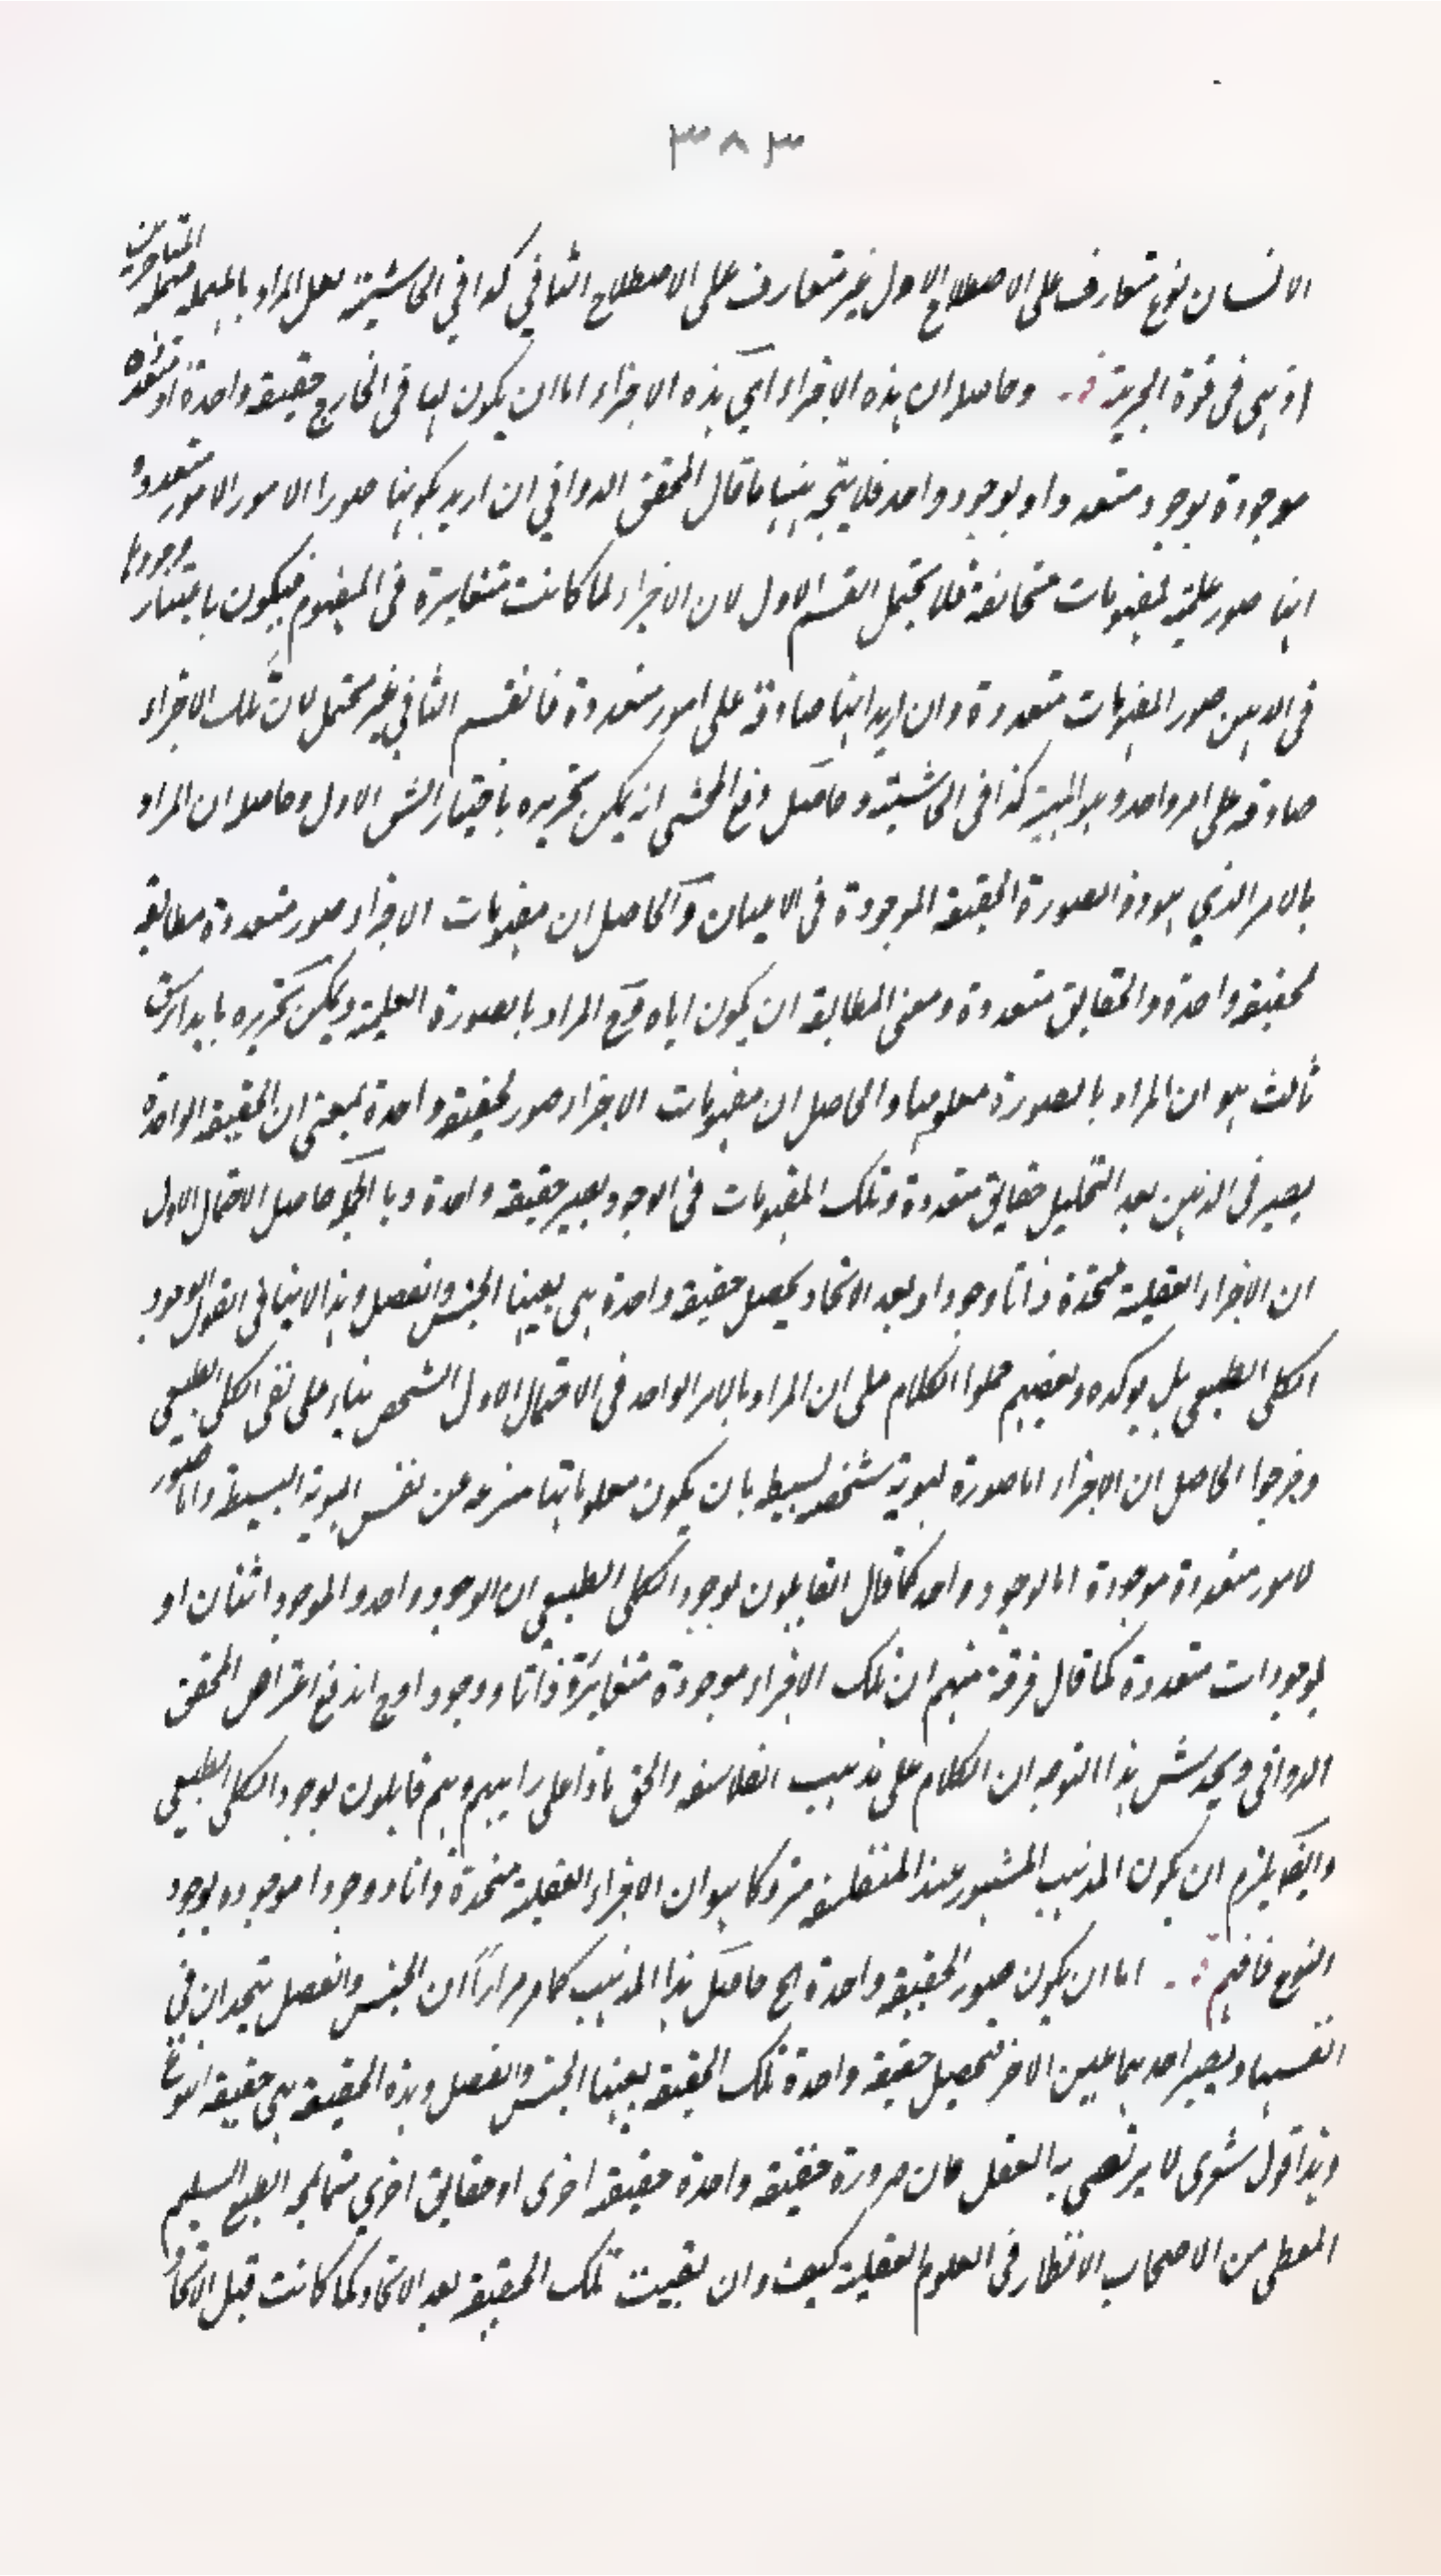 ٣٨٣
الانسان نوع متعارف على الاصطلاح الاول غير متعارف على الاصطلاح الثاني كذا في الحاشية لعل المراد بالمهملة مهملة المتاخرين
اذ هي في قوة الجزئية وحاصله ان هذه الاجزاء اي هذه الاجزاء اما ان يكون لها في الخارج حقيقة واحدة او متعددة
موجودة بوجود متعدد او بوجود واحد فلا يتجه ما قال المحقق الدواني ان اريد بكونها صورا الامور الامور متعددة
انها صور علمية لمفهومات متخالفة فلا يحتمل القسم الاول لان الاجزاء لما كانت متغايرة في المفهوم فيكون باعتبار وجودها
في الذهن صور المفهومات متعددة وان اريد انها صادقة على امور متعددة فالقسم الثاني غير محتمل لان تلك الاجزاء
صادقة على امر واحد وهو المهية كذا في الحاشية وحاصل دفع المحشى انه يمكن تحريره باختيار الشق الاول وحاصله ان المراد
بالامر الذي هو ذو الصورة الحقيقة الموجودة في الاعيان والحاصل ان مفهومات الاجزاء صور متعددة مطابقة
لحقيقة واحدة والحقايق متعددة ومعنى المطابقة ان يكون اياه مع المراد بالصورة العلمية ويمكن تحريره بابداء شق
ثالث هو ان المراد بالصورة معلومها والحاصل ان مفهومات الاجزاء صور لحقيقة واحدة بمعنى ان الحقيقة الواحدة
يصير في الذهن بعد التحليل حقايق متعددة وتلك المفهومات في الوجود يصير حقيقة واحدة وبالجملة حاصل الاحتمال الاول
ان الاجزاء العقلية متحدة ذاتا ووجودا وبعد الاتحاد يحصل حقيقة واحدة هي بعينها الجنس والفصل وهذا لا ينافي القول بوجود
الكلى الطبيعي بل يوكده وبعضهم حملوا الكلام على ان المراد بالامر الواحد في الاحتمال الاول الشخص بناء على نفى الكلى الطبيعي
وخرجوا الحاصل ان الاجزاء اما صورة لهوية شخصية بسيطة بان يكون معلوماتها منتزعة عن نفس الهوية البسيطة واما صور
لامور متعددة موجودة اما بوجود واحد كما قال القايلون بوجود الكلى الطبيعي ان الوجود واحد والموجود اثنان او
بوجودات متعددة كما قال فرقة منهم ان تلك الاجزاء موجودة متغايرة ذاتا ووجودا وح اندفع اعتراض المحقق
الدواني ويخدش هذا التوجه ان الكلام على مذهب الفلاسفة والحق ماذا على رايهم وهم قايلون بوجود الكلى الطبيعي
وايضا يلزم ان يكون المذهب المشهور عند المتفلسفة متروكا هو ان الاجزاء العقلية متحدة ذاتا ووجودا موجودة بوجود
النوع فافهم اما ان يكون صور الحقيقة واحدة الخ حاصل هذا المذهب كما مر مرارا ان الجنس والفصل يتحدان في
انفسهما ويصير احدهما عين الاخر فتحصيل حقيقة واحدة تلك الحقيقة بعينها الجنس والفصل وهذه الحقيقة هي حقيقة النوع
وهذا قول شعرى لا يرتضى به العقل فان صيرورة حقيقة واحدة حقيقة اخرى او حقايق اخرى الطبع السليم
المعطى من الاصحاب الانظار في العلوم العقلية كيف وان بقيت تلك الحقيقة بعد الاتحاد كما كانت قبل الاتحاد